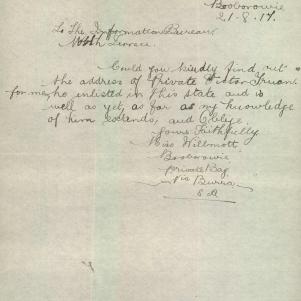 Booborowie
21-8-17.
To The Information Bureau
North Terrace
Could you kindly find out
the address of Private Victor
for me, he enlisted in this state and is
well as yet, as far as my knowledge
of him extends, and Oblige,
Yours Faithfully
Miss Willmott
Booborowie
Private Bag
via Burra
S A